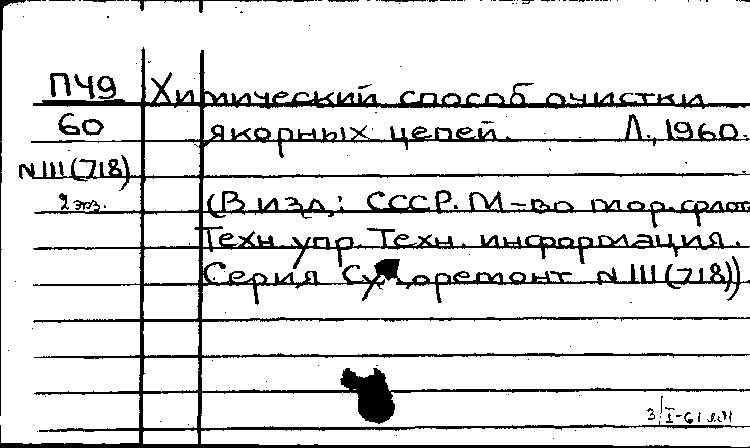 ПЧ9
60
N111(718)
2 экз.
Химический способ очистки
якорных цепей. Л., 1960.
(В изд.: СССР. М-во мор. флота
Техн. упр. Техн. информация.
Серия Судоремонт N111(718))
3/I-61